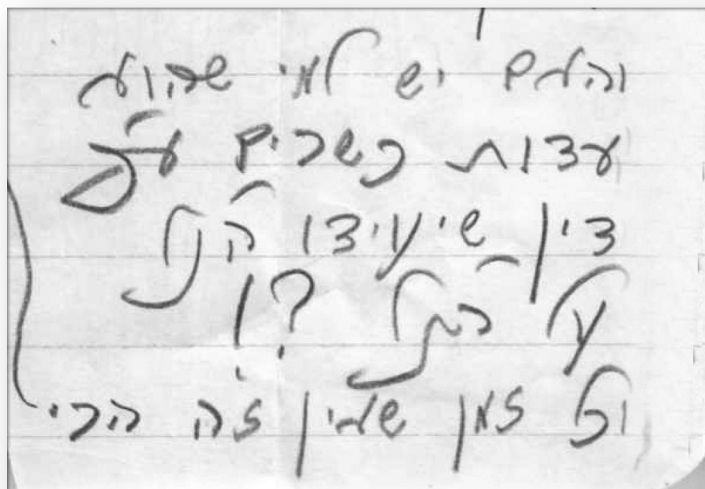 והאם יש למי שהוא
עדות כשרים ע"פ
דין שיעידו הנ"ל
על הנ"ל ?!
וכל זמן שאין זה הרי